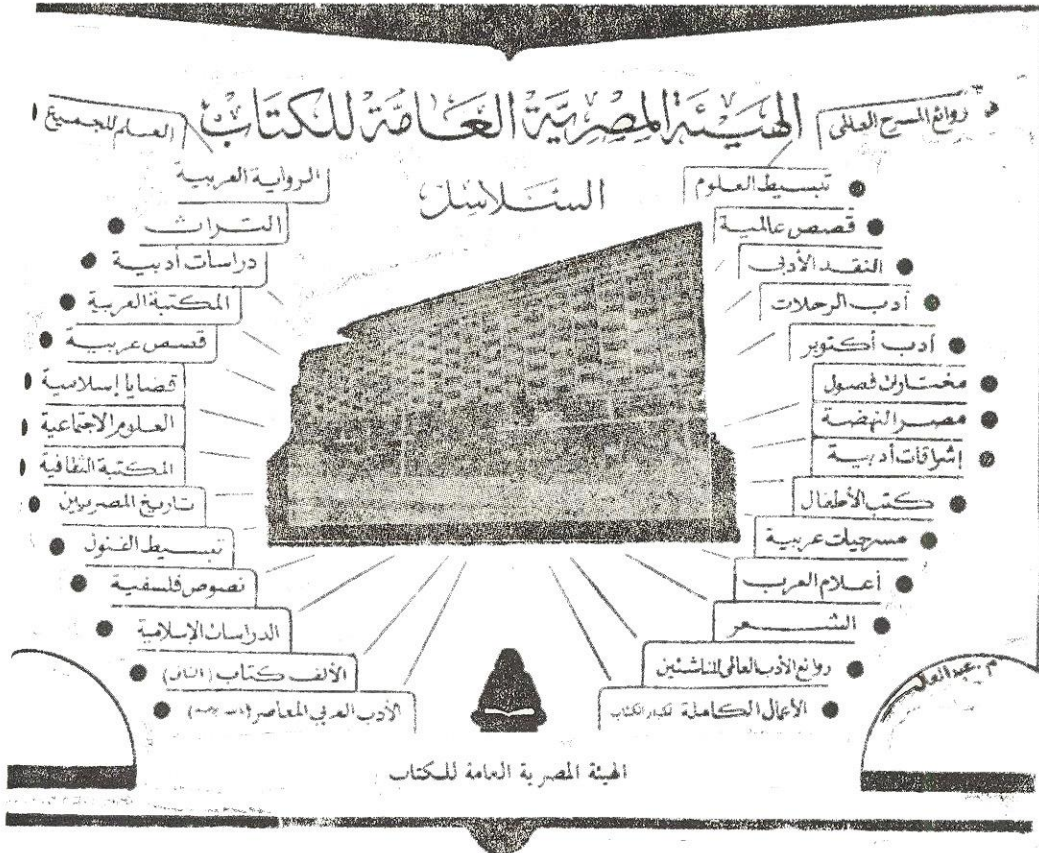 الهيئة المصرية العامة للكتاب
السلاسل
روائع المسرح العالمي
تبسيط العلوم
قصص عالمية
النقد الأدبى
أدب الرحلات
أدب أكتوبر
مختارات فصول
مصر النهضة
إشراقات أدبية
كتب الأطفال
مسرحيات عربية
أعلام العرب
الشعر
روائع الأدب العالمى للناشئين
الأعمال الكاملة لكبار الكتاب
العلم للجميع
الرواية العربية
التراث
دراسات أدبية
المكتبة العربية
قصص عربية
قضايا إسلامية
العلوم الاجتماعية
المكتبة الثقافية
تاريخ المصريين
تبسيط الفنون
نصوص فلسفية
الدراسات الإسلامية
الألف كتاب (الثانى)
الأدب العربى المعاصر
م. عبدالعال
الهيئة المصرية العامة للكتاب